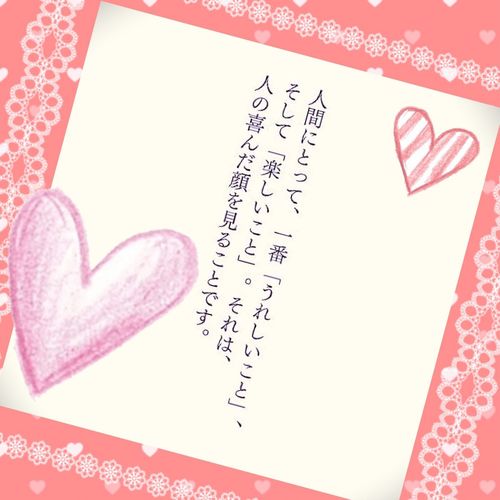 人間にとって、一番「うれしいこと」、
そして「楽しいこと」。それは、
人の喜んだ顔を見ることです。